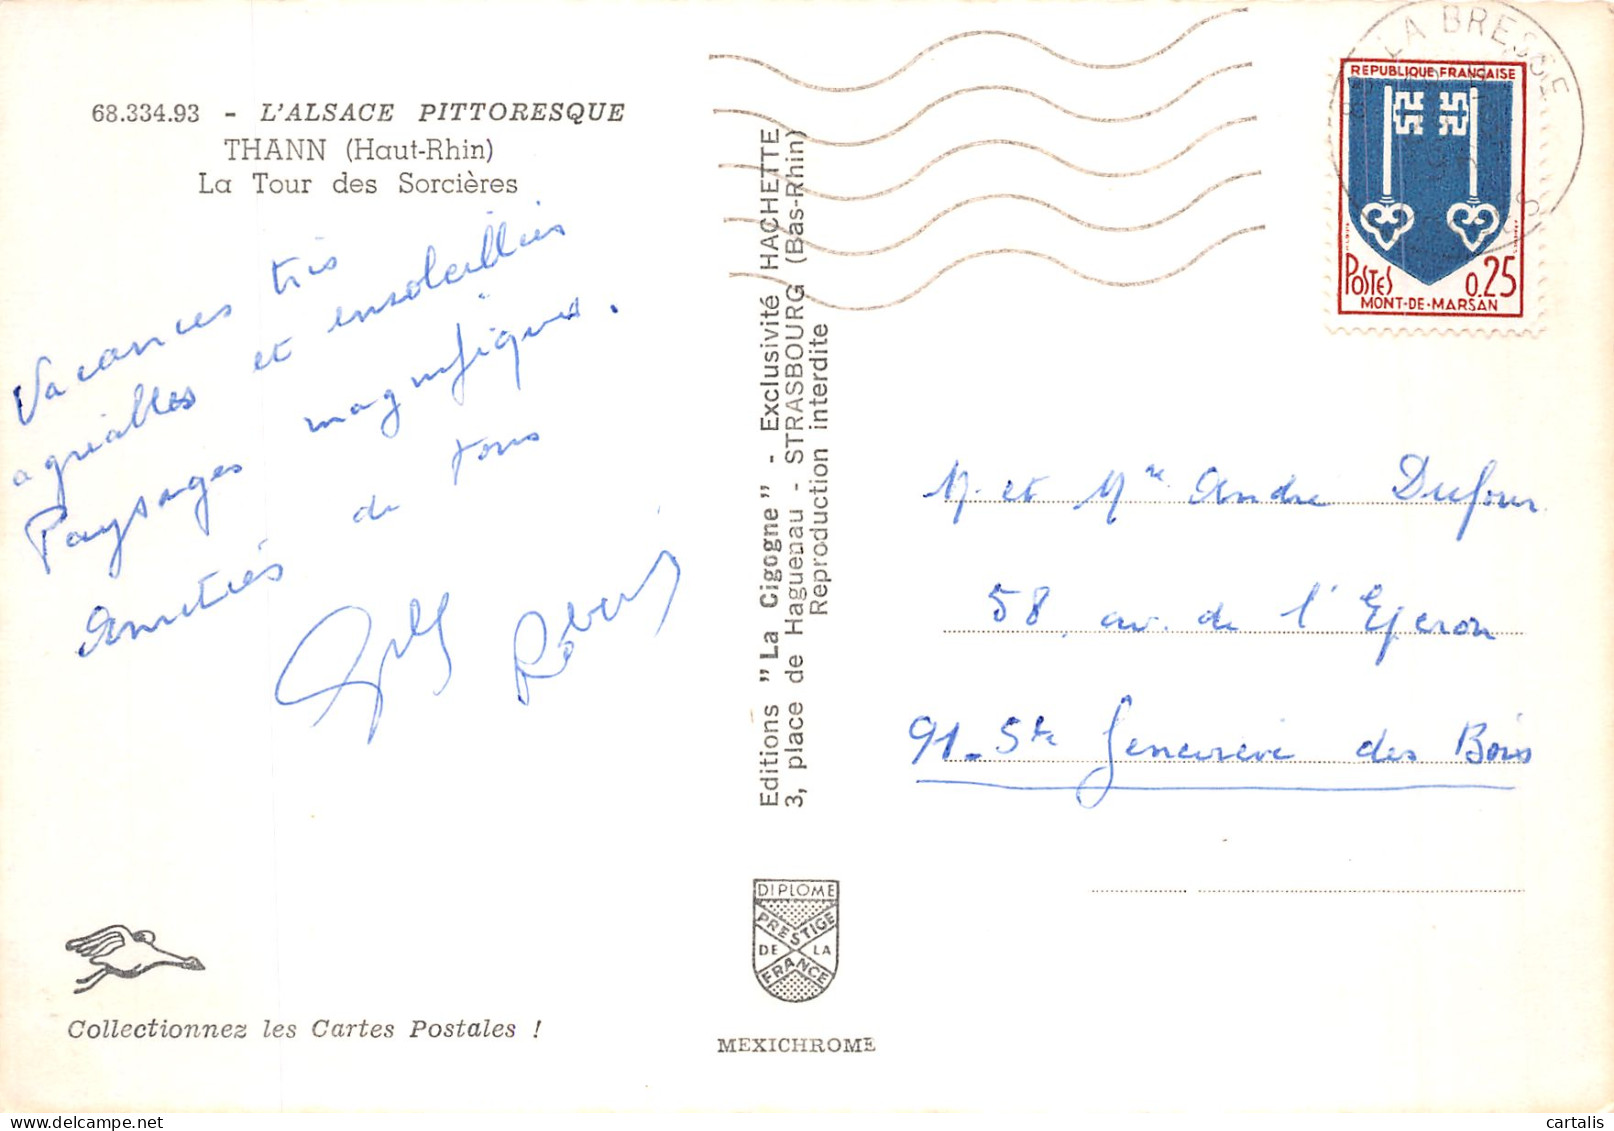 68.334.93 - L'ALSACE PITTORESQUE
THANN (Haut-Rhin)
La Tour des Sorcières
Vacances très
agréables et ensoleillées
Paysages magnifiques.
Amitiés de tous
Robert
Editions "La Cigogne" - Exclusivité HACHETTE
3, place de Haguenau - STRASBOURG (Bas-Rhin)
Reproduction interdite
LA BRESSE
REPUBLIQUE FRANÇAISE
POSTES 0,25
MONT-DE-MARSAN
M. et Mme André Dufour
58, av. de l'Eperon
91 - Ste Geneviève des Bois
DIPLOME
PRESTIGE
DE LA
FRANCE
MEXICHROME
Collectionnez les Cartes Postales !
delcampe.net
cartalis